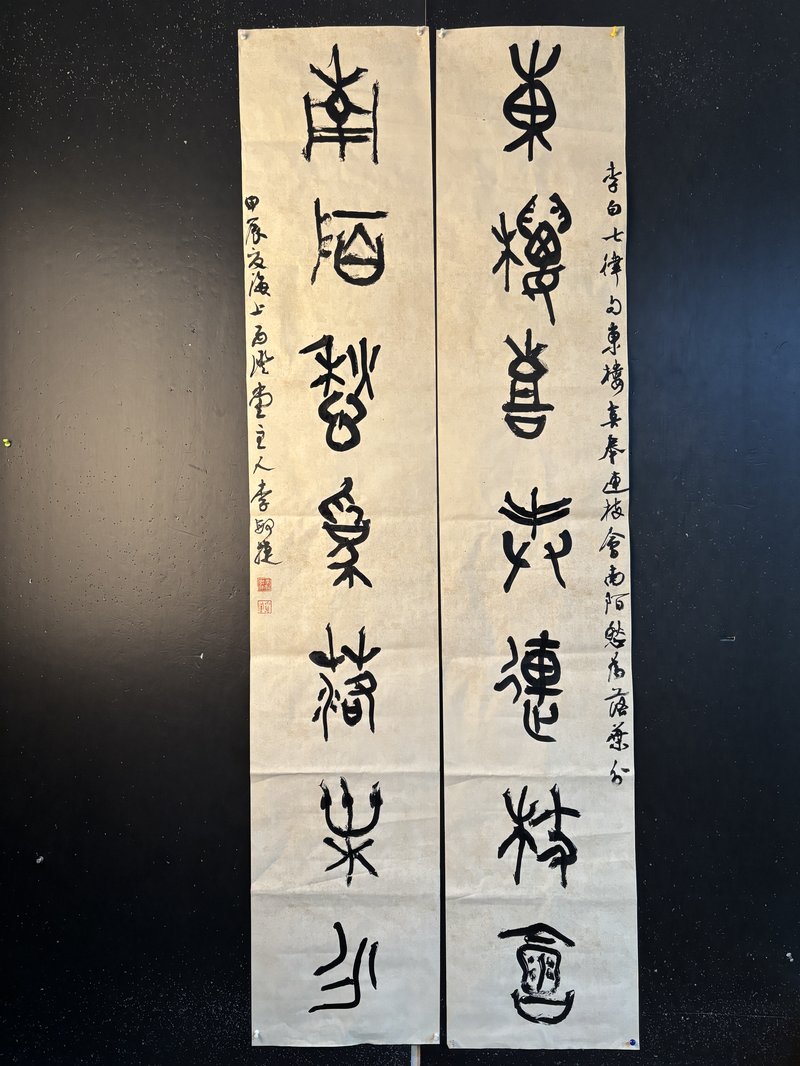 李白七律句東樓喜奉連枝會南陌愁為落葉分
東樓喜奉連枝會
南陌愁為落葉分
甲辰夏海上堂主人李